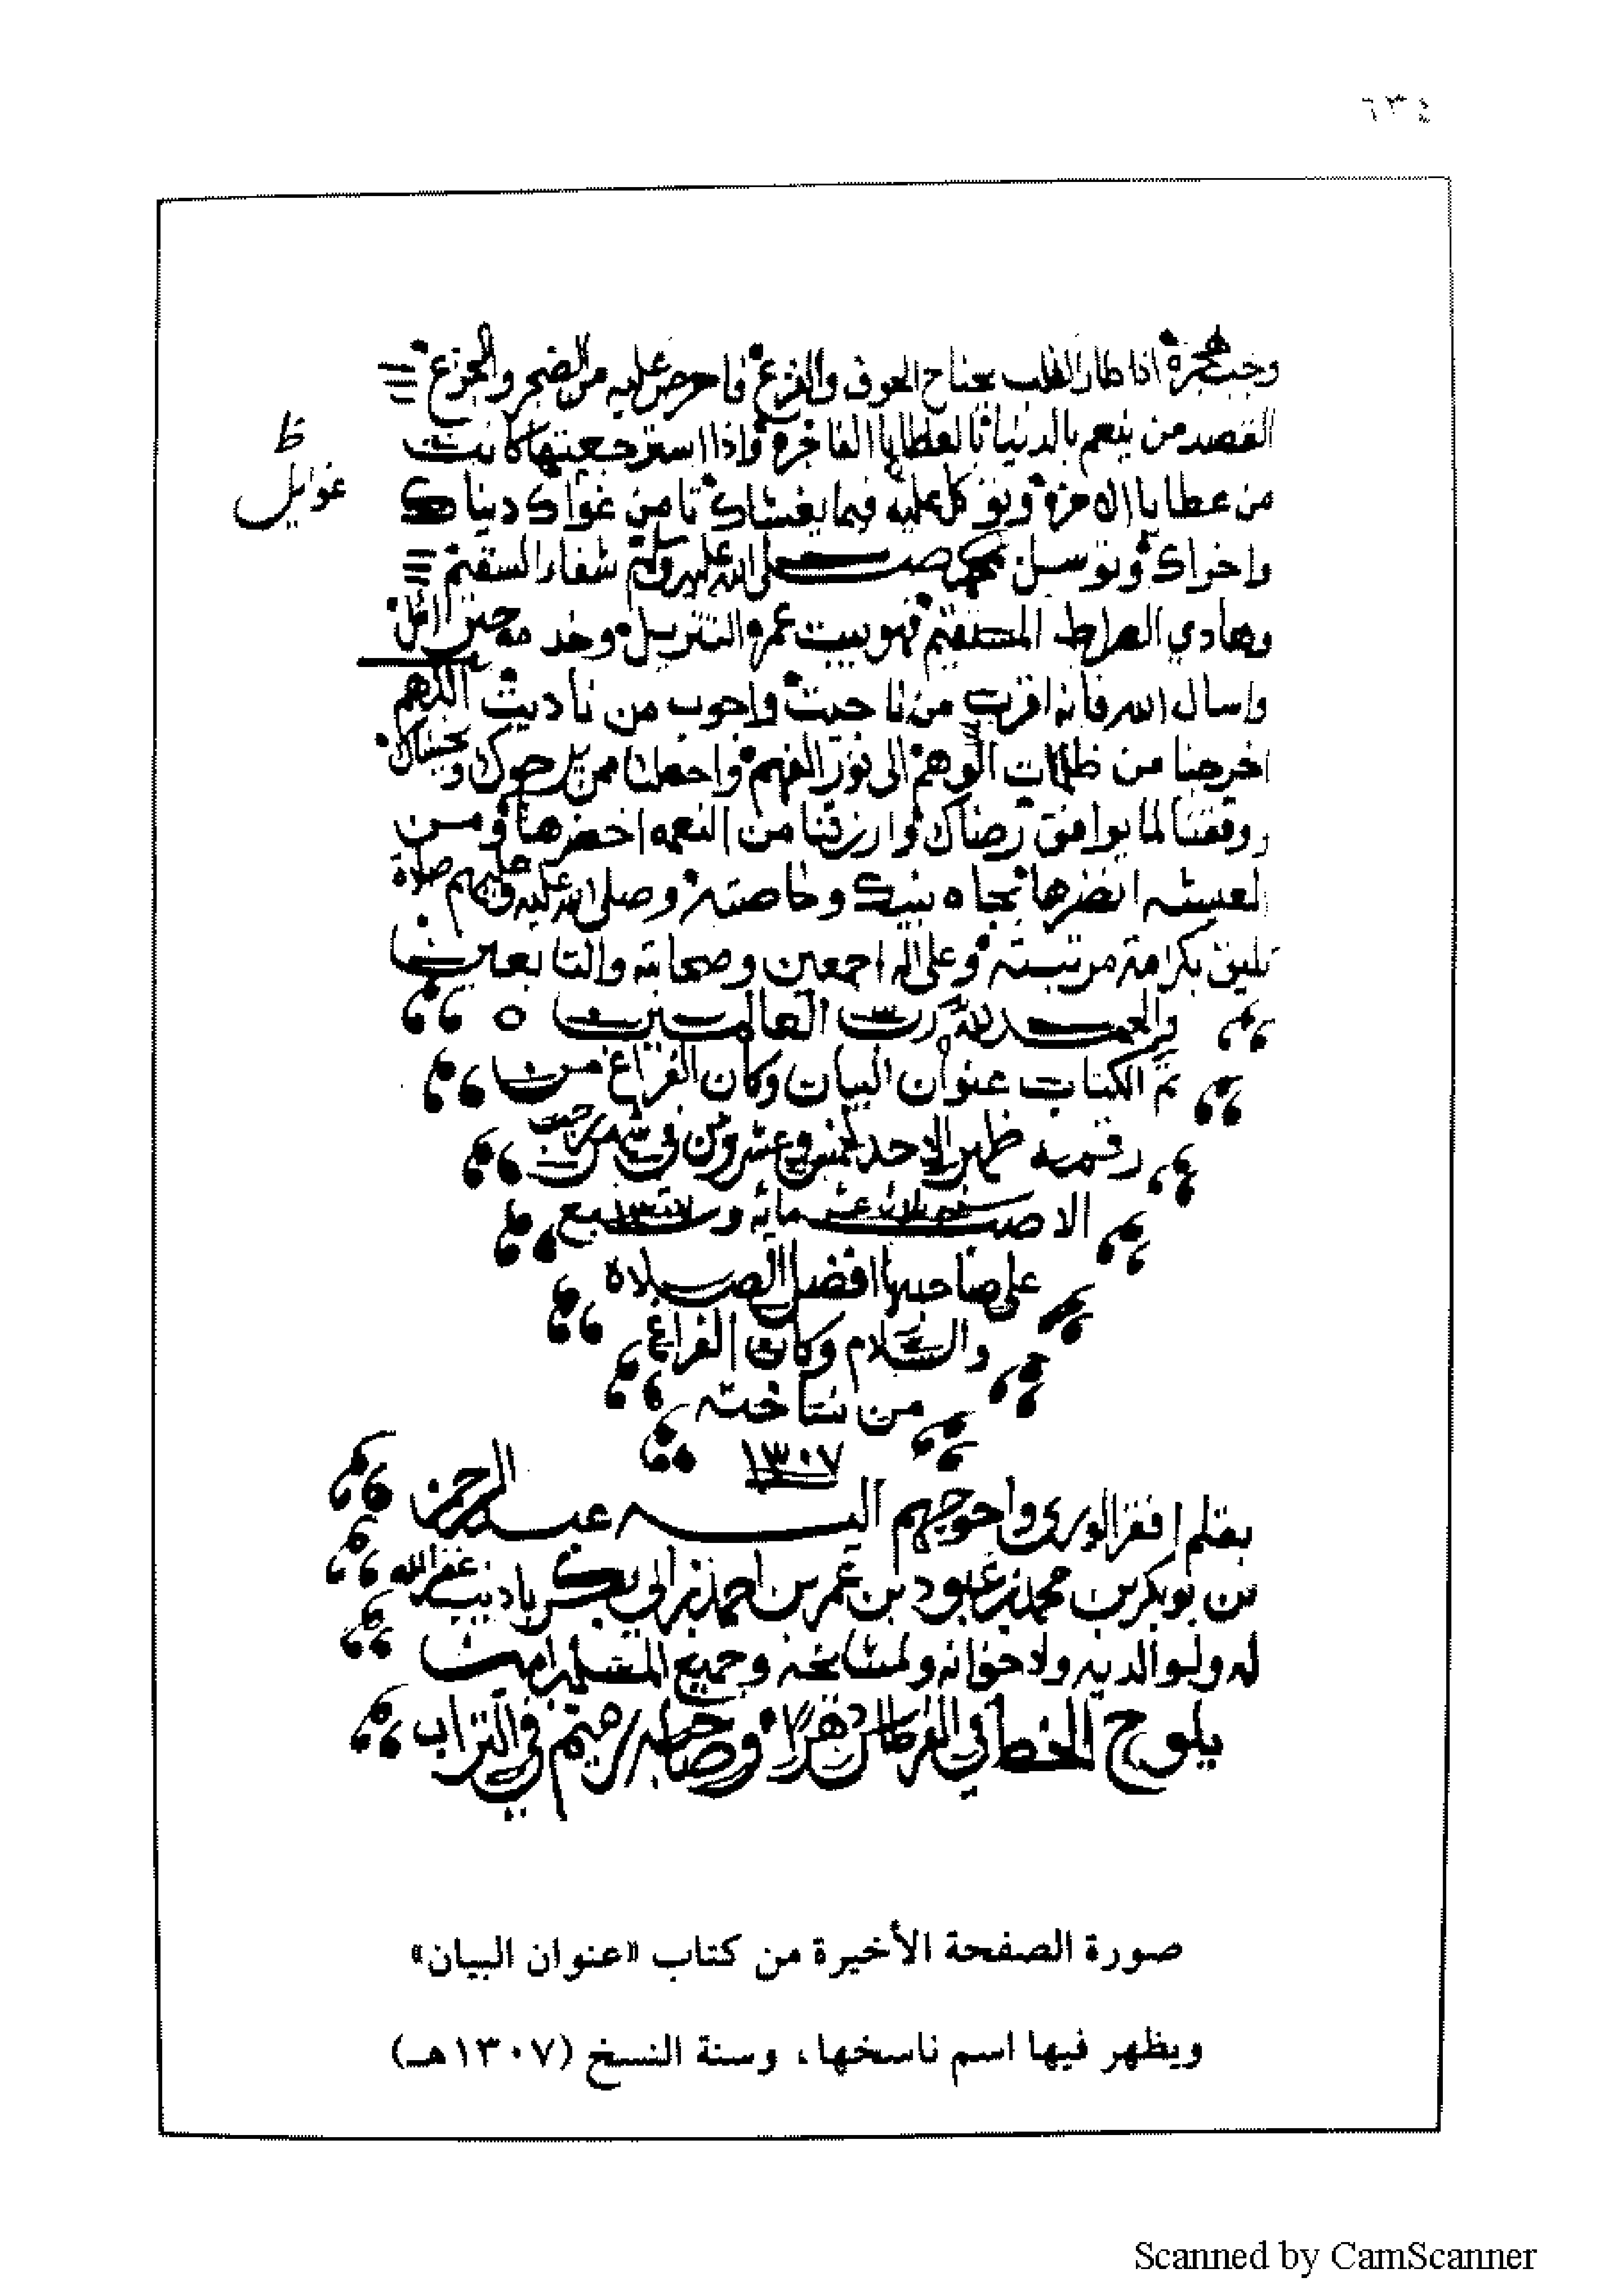 ٦٣٤
اذا طار القلب بجناح الخوف والفزع فاحرص عليه من الضجر والجزع
القصد من ينعم بالدنيا بالعطايا الفاخره واذا استرجعتها كانت
من عطايا الاخره وتوكل عليه فيما يغشاك تامن غواك دنياك
ظ
غوايل
واخراك وتوسل بمحمد صلى الله عليه وسلم شفاء السقيم
وهادي الصراط المستقيم فهو بيت عمره التنزيل وخدمه جبرائيل
واسال الله فانه اقرب من ناجيت واجوب من ناديت اللهم
اخرجنا من ظلمات الوهم الى نور الفهم واجعلنا ممن يرجوك ويخشاك
ووفقنا لما يوافق رضاك وارزقنا من النعمه اخضرها ومن
العيشه انضرها بجاه نبيك وخاصته وصلى الله عليه وعليهم صلاة
تليق بكرامة مرتبته وعلى اله اجمعين وصحابته والتابعين
والحمد لله رب العالمين
تم الكتاب عنوان البيان وكان الفراغ من
رقمه ظهر الاحد لخمس وعشرين في شهر رجب
الاصب سنه ثلاث عشر مائه وسبع ١٣٠٧
على صاحبها افضل الصلاة
والسلام وكان الفراغ
من نساخته
١٣٠٧
بقلم افقر الورى واحوجهم اليه عبد الرحمن
بن بوبكر بن محمد بن عبود بن عمر بن احمد بن ابي بكر باذيب غفر الله
له ولوالديه ولاخوانه ولمشايخه وجميع المسلمين امين
يلوح الخط في القرطاس دهرا وصاحبه رميم في التراب
صورة الصفحة الأخيرة من كتاب «عنوان البيان»
ويظهر فيها اسم ناسخها، وسنة النسخ (١٣٠٧هـ)
Scanned by CamScanner